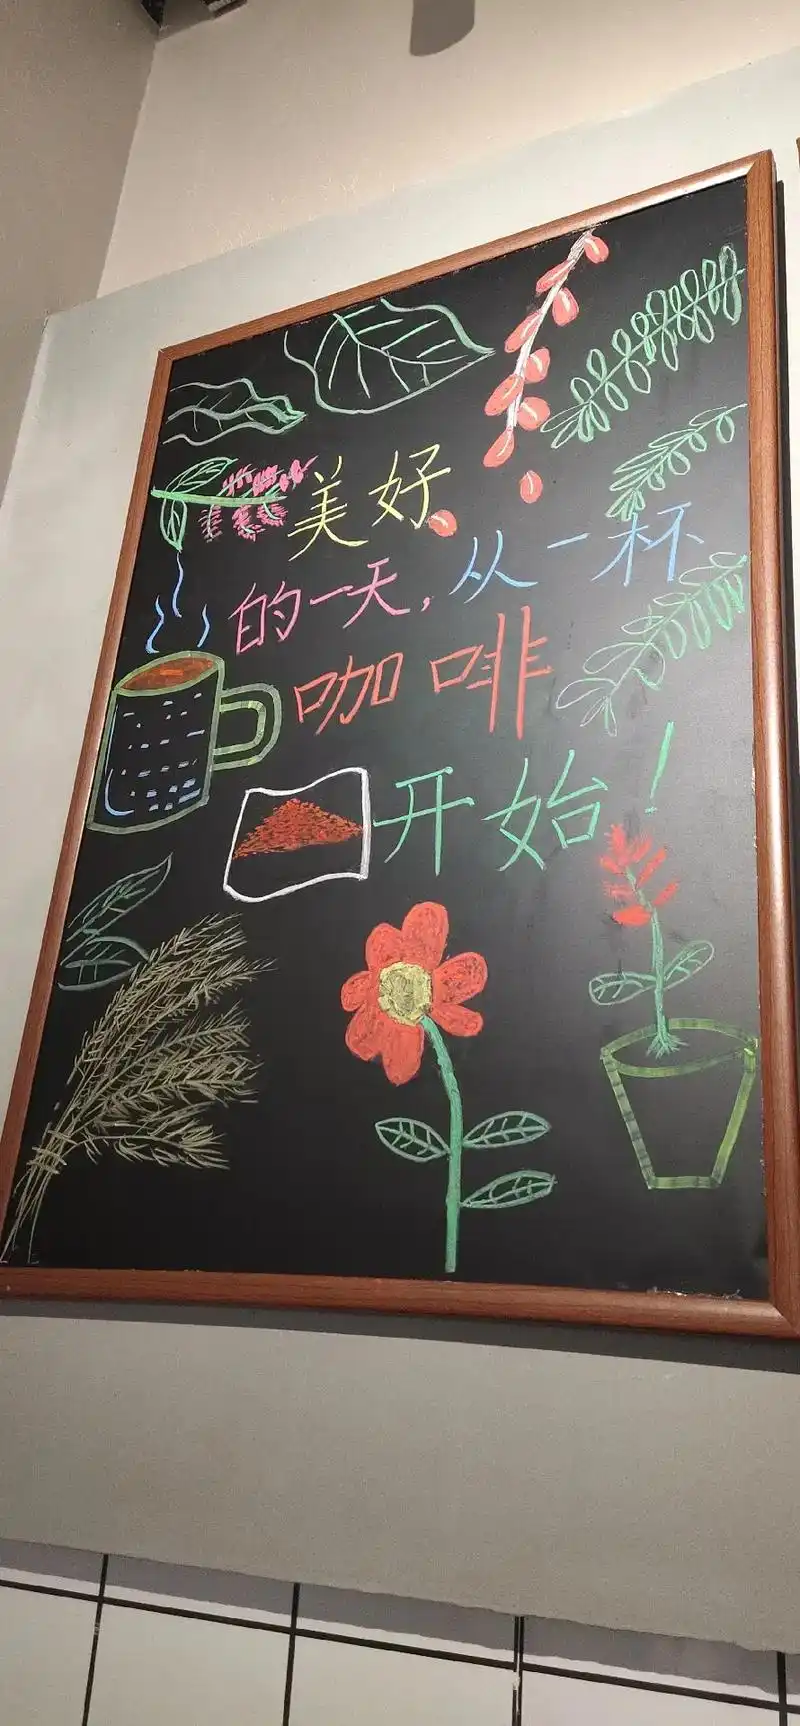 美好
的一天，从一杯
咖啡
开始！